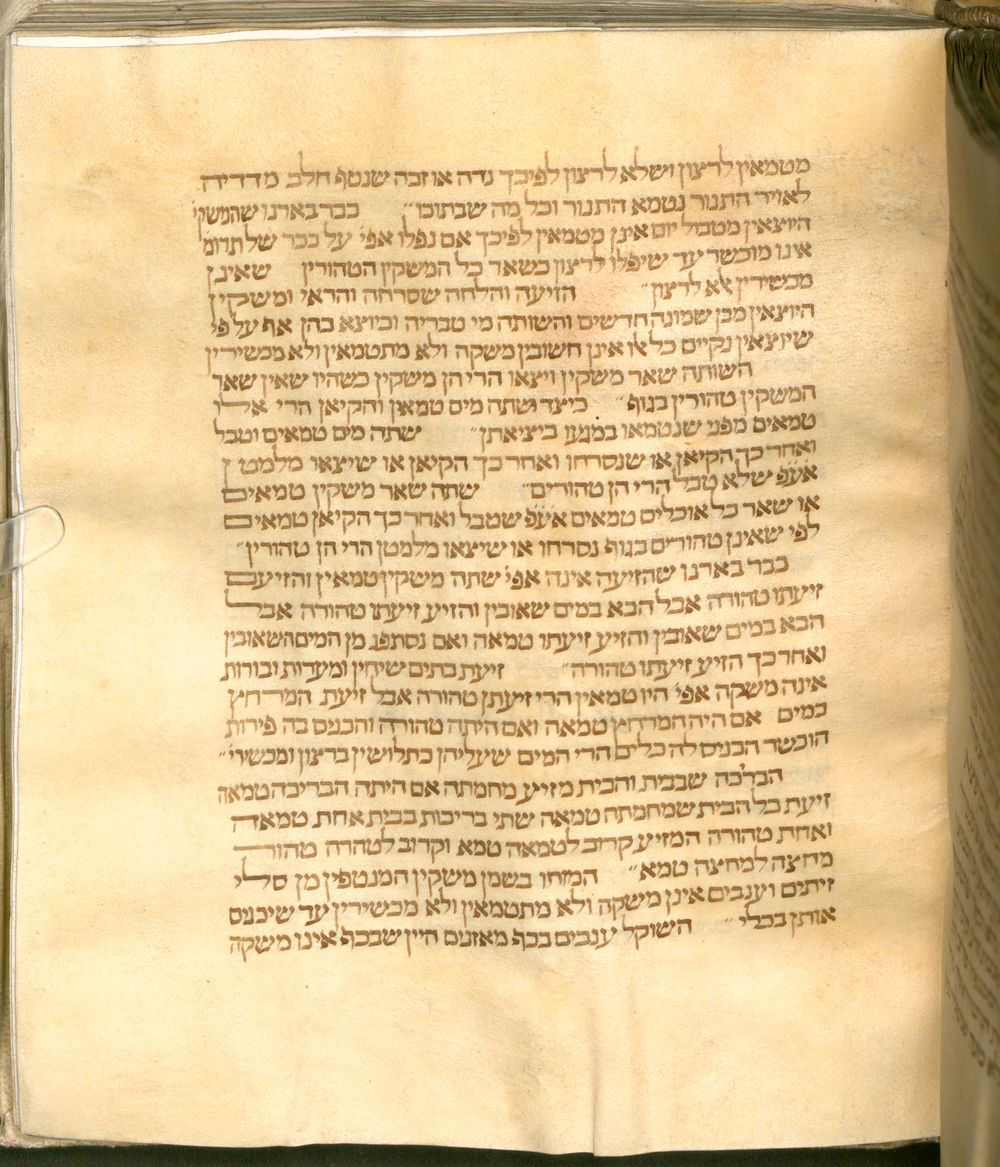 מטמאין לרצון ושלא לרצון לפיכך נדה או זבה שנטף חלב מדדיה
לאויר התנור נטמא התנור וכל מה שבתוכו״ כבר בארנו שהמשקי׳
היוצאין מטבול יום אינן מטמאין לפיכך אם נפלו אפי׳ על ככר של תרומ׳
אינו מוכשר עד שיפלו לרצון כשאר כל המשקין הטהורין שאינן
מכשירין אלא לרצון״ הזיעה והלחה שסרחה והראי ומשקין
היוצאין מבן שמונה חדשים והשותה מי טבריה וכיוצא בהן אף על פי
שיוצאין נקיים כל אלו אינן חשובין משקה ולא מתטמאין ולא מכשירין
השותה שאר משקין ויצאו הרי הן משקין כשהיו שאין שאר
המשקין טהורין בגוף״ כיצד שתה מים טמאין והקיאן הרי אילו
טמאים מפני שנטמאו במגעו ביציאתן״ שתה מים טמאים וטבל
ואחר כך הקיאן או שנסרחו ואחר כך הקיאן או שיצאו מלמטן
אע״פ שלא טבל הרי הן טהורים״ שתה שאר משקין טמאים
או שאר כל אוכלים טמאים אע״פ שטבל ואחר כך הקיאן טמאים
לפי שאינן טהורים בגוף נסרחו או שיצאו מלמטן הרי הן טהורין״
כבר בארנו שהזיעה אינה אפי׳ שתה משקין טמאין והזיע
זיעתו טהורה אבל הבא במים שאובין והזיע זיעתו טהורה אבל
הבא במים שאובין והזיע זיעתו טמאה ואם נסתפג מן המים השאובין
ואחר כך הזיע זיעתו טהורה״ זיעת בתים שיחין ומערות ובורות
אינה משקה אפי׳ היו טמאין הרי זיעתן טהורה אבל זיעת המרחץ
כמים אם היה המרחץ טמאה ואם היתה טהורה והכניס בה פירות
הוכשר הכניס לה כלים הרי המים שעליהן כתלושין ברצון ומכשירי׳״
הברכה שבבית והבית מזיע מחמתה אם היתה הבריכה טמאה
זיעת כל הבית שמחמתה טמאה שתי בריכות בבית אחת טמאה
ואחת טהורה המזיע קרוב לטמאה טמא וקרוב לטהרה טהור
מחצה למחצה טמא״ המוחו בשמן משקין המנטפין מן סלי
זיתים וענבים אינן משקה ולא מתטמאין ולא מכשירין עד שיכניס
אותן בכלי״ השוקל ענבים בכף מאזנים היין שבכף אינו משקה